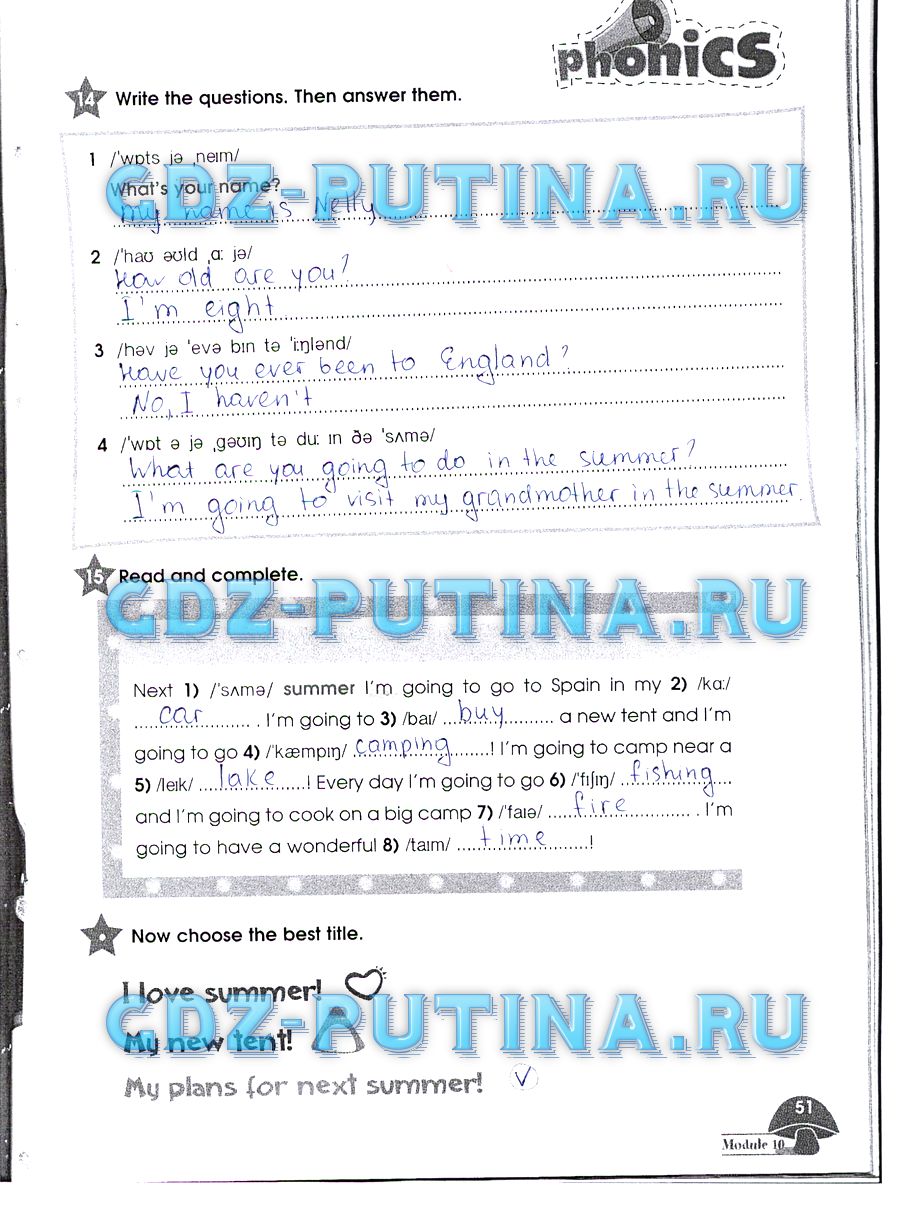 phonics
14 Write the questions. Then answer them.
1 /ˈwɒts jə ˌneɪm/
What's your name?
My name is Nelly
GDZ-PUTINA.RU
2 /ˈhaʊ əʊld ˌɑː jə/
How old are you?
I'm eight
3 /həv jə ˈevə bɪn tə ˈiːŋlənd/
Have you ever been to England?
No, I haven't
4 /ˈwɒt ə jə ˌgəʊɪŋ tə duː ɪn ðə ˈsʌmə/
What are you going to do in the summer?
I'm going to visit my grandmother in the summer.
15 Read and complete.
GDZ-PUTINA.RU
Next 1) /ˈsʌmə/ summer I'm going to go to Spain in my 2) /kɑː/
car . I'm going to 3) /baɪ/ buy a new tent and I'm
going to go 4) /ˈkæmpɪŋ/ camping ! I'm going to camp near a
5) /leɪk/ lake ! Every day I'm going to go 6) /ˈfɪʃɪŋ/ fishing
and I'm going to cook on a big camp 7) /ˈfaɪə/ fire . I'm
going to have a wonderful 8) /taɪm/ time !
Now choose the best title.
I love summer!
GDZ-PUTINA.RU
My new tent!
My plans for next summer! V
51
Module 10